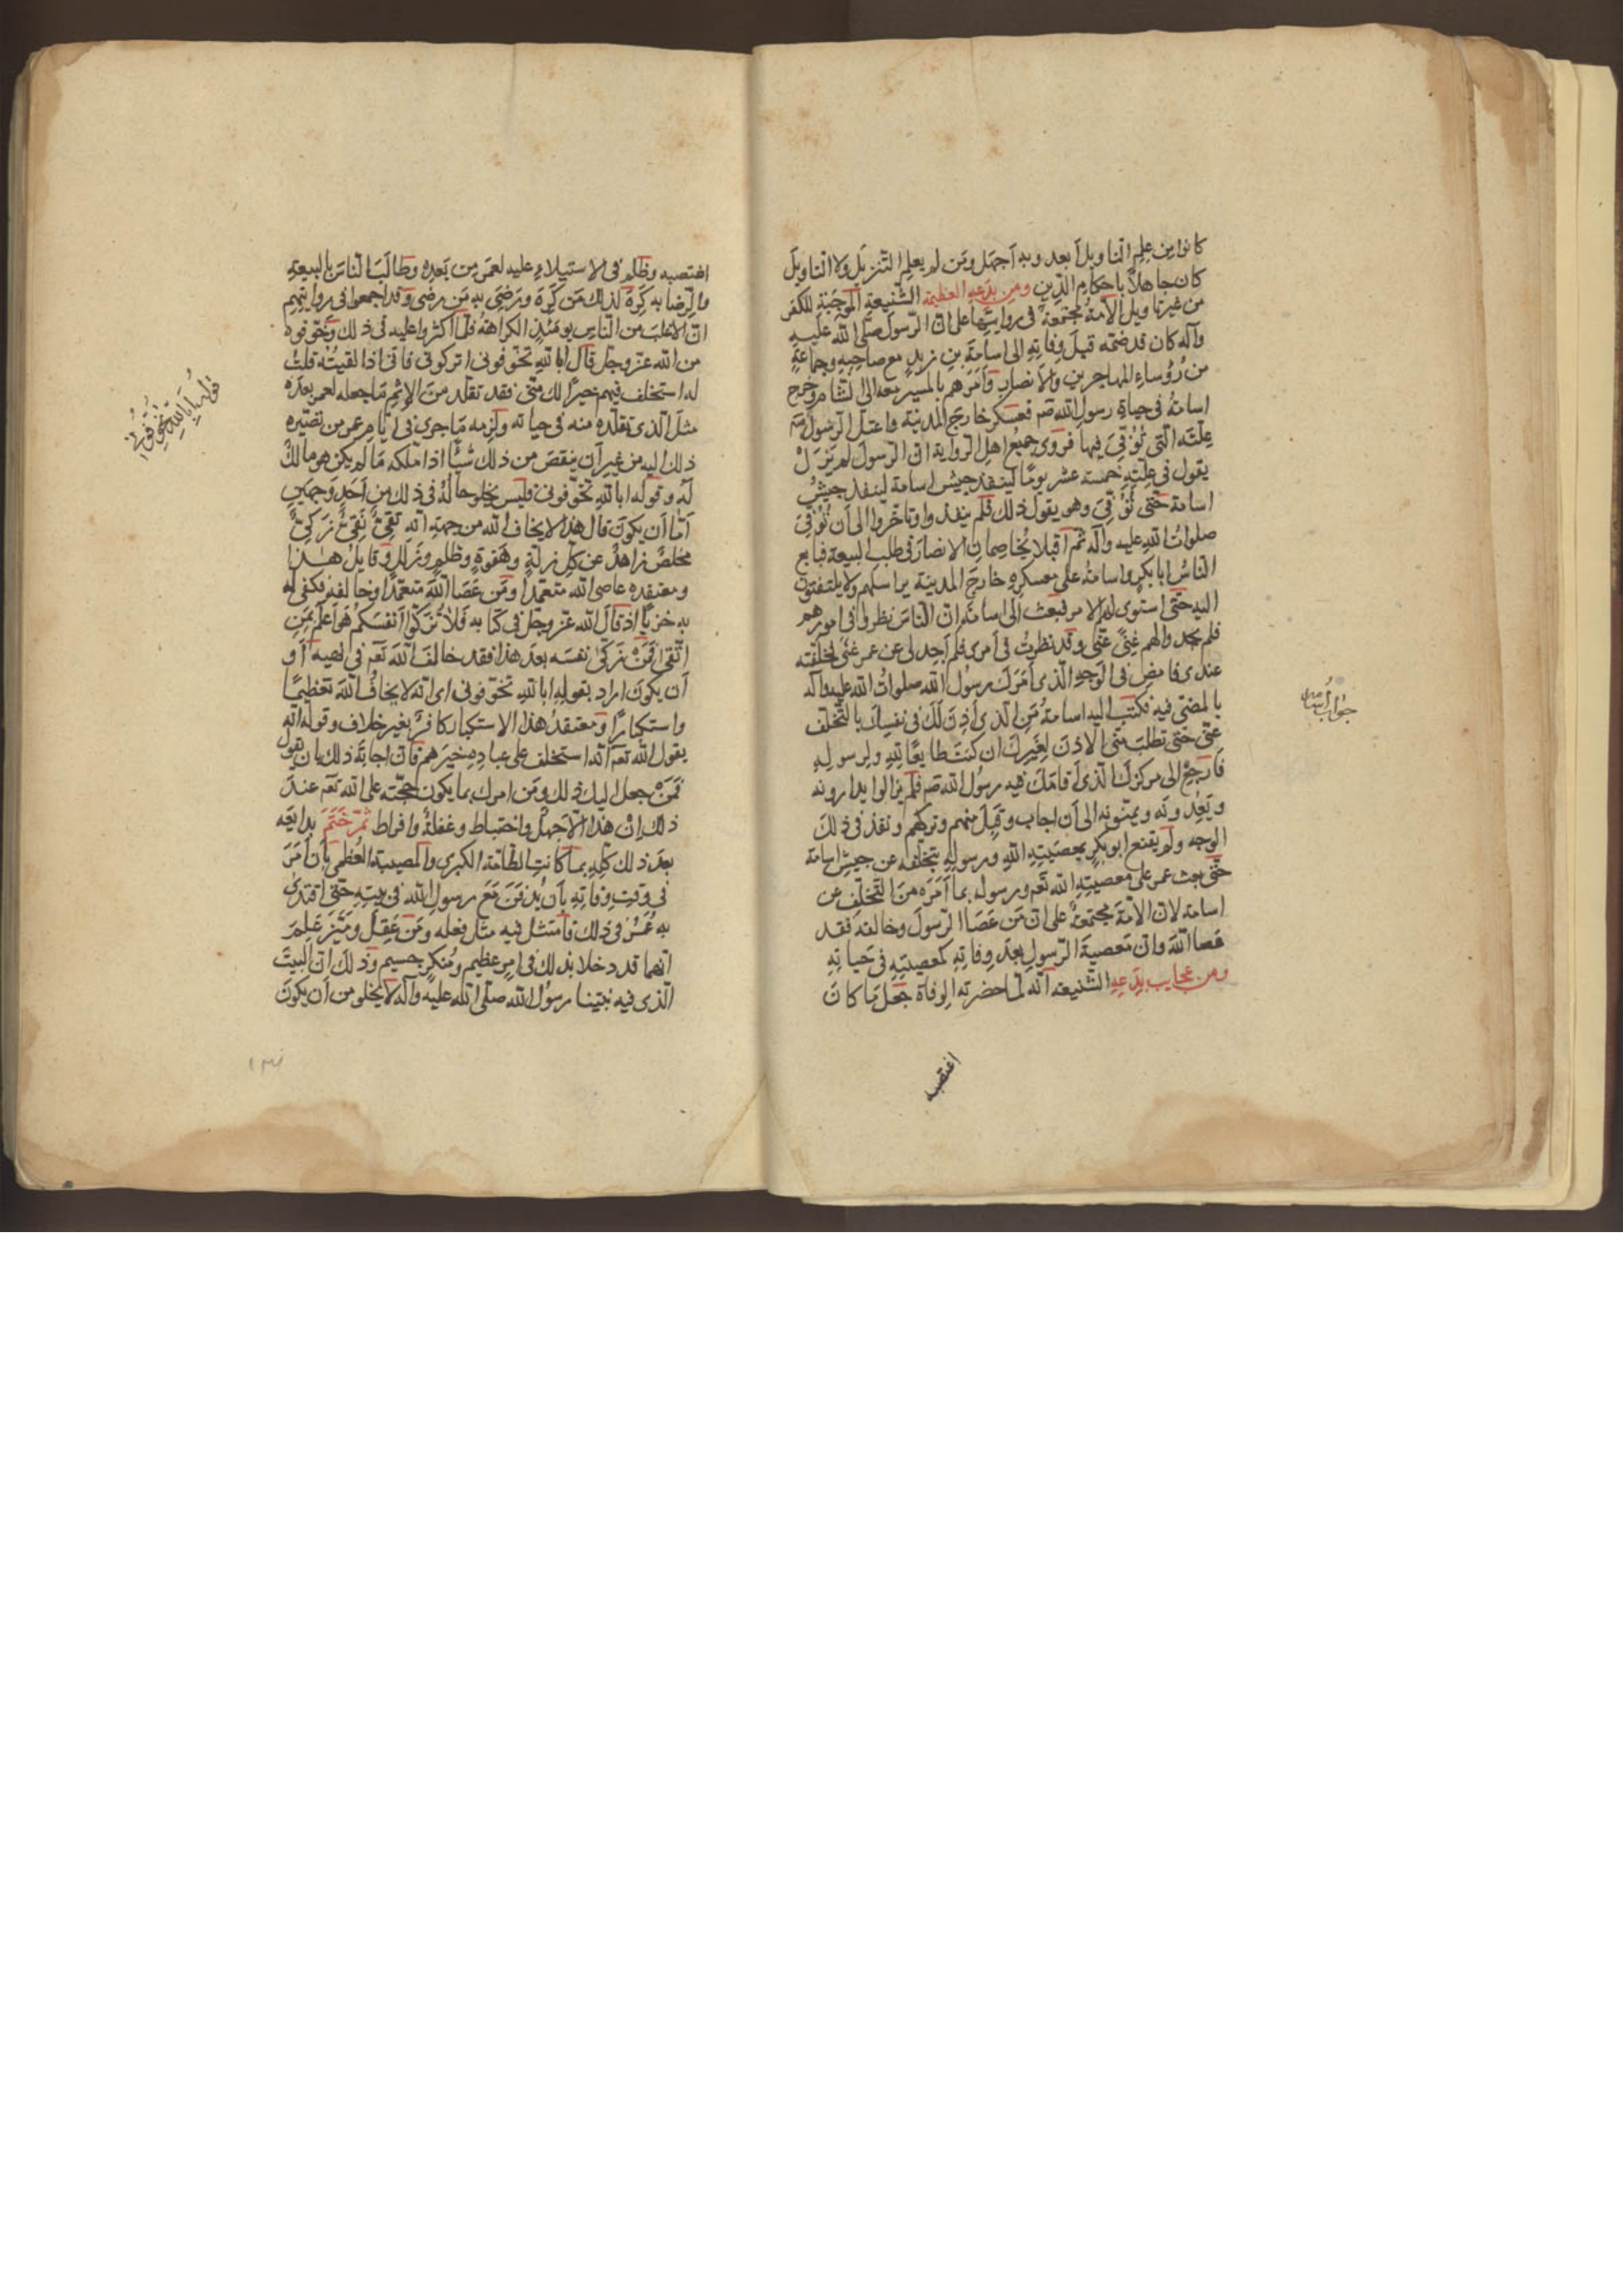 كانوا من علم التاويل أبعد وبه أجهل ومن لم يعلم التنزيل ولا التاويل
كان جاهلاً باحكام الدين ومن بدعه العظيمة الشنيعة الموجبة للكفر
من غير تاويل الأمة مجتمعة فى روايتها على ان الرسول صلى الله عليه
وآله كان قد ضمه قبل وفاته الى اسامة بن زيد مع صاحبه وجماعة
من رؤوساء المهاجرين والأنصار وأمرهم بالمسير معه الى الشام وخرج
اسامة فى حياة رسول الله صم فعسكر خارج المدينة واعتل الرسول
علته التى توفى فيها فروى جميع اهل الرواية ان الرسول لم يزل
يقول فى علته خمسة عشر يوماً لينفذ جيش اسامة لينفذ جيش
اسامة حتى توفى وهو يقول ذلك فلم ينفذوا وتاخروا الى أن توفى
صلوات الله عليه وآله ثم أقبلا يخاصمان الانصار فى طلب البيعة فبايع
الناس ابا بكر واسامة على معسكره خارج المدينة يراسلهم ولا يلتفتون
اليه حتى استوى لهم الامر فبعث الى اسامة ان الناس نظروا فى امورهم
فلم يجدوا لهم غنى عنى وقد نظرت فى أمرى فلم أجد لى عن عمر غنى فخلفته
عندى فامض فى الوجه الذى أمرك رسول الله صلوات الله عليه وآله
بالمضى فيه فكتب اليه اسامة من الذى أذن لك فى نفسك بالتخلف
عنى حتى تطلب منى الاذن لغيرك ان كنت طايعا لله ولرسوله
فارجع الى مركزك الذى اقامك فيه رسول الله صم فلم يزالوا يدارونه
ويعدونه ويمنونه الى أن اجاب وقبل منهم وتركهم ونفذ فى ذلك
الوجه ولم يقنع ابو بكر بمعصيته الله ورسوله بتخلفه عن جيش اسامة
حتى بعث عمر على معصيته الله تعم ورسوله بما أمره من التخلف عن
اسامة لان الأمة مجتمعة على ان من عصا الرسول وخالفه فقد
عصا الله وان معصية الرسول بعد وفاته كمعصيته فى حياته
ومن عجايب بدعه الشنيعه انه لما حضرته الوفاة جعل ما كان
اغتصبه
جواب اسامه
اغتصبه وظلم فى الاستيلاء عليه لعمر من بعده وطالب الناس بالبيعة
والرضا به كره لذلك من كره ورضى به من رضى وقد اجمعوا فى روايتهم
ان الاغلب من الناس يومئذ الكراهة فلما أكثروا عليه فى ذلك وخوفوه
من الله عز وجل قال ابالله تخوفونى اتركونى فانى اذا لقيته قلت
له استخلف فيهم خيرا لك منى فقد تقلد من الإثم ما جعله لعمر بعده
مثل الذى تقلده منه فى حياته ولزمه ما جرى فى ايام عمر من تصييره
ذلك اليه من غير أن ينقص من ذلك شيأ اذا ملكه ما لم يكن هو مالك
له وقوله ابالله تخوفونى فليس يخلو حاله فى ذلك من أحد وجهين
أما أن يكون قال هذا لا يخاف الله من جهة انه تقى نقى زكى
مخلص زاهد عن كل زلة وهفوة وظلم وزلل وقايل هذا
ومعتقده عاصى الله متعمدا ومن عصا الله متعمدا وخالفه فكفى له
به خزيا اذ قال الله عز وجل فى كتابه فلا تزكوا أنفسكم هو أعلم بمن
اتقى فمن زكى نفسه بعد هذا فقد خالف الله تعم فى نهيه أو
أن يكون اراد بقوله ابالله تخوفونى اى انه لا يخاف الله تعظيما
واستكبارا ومعتقد هذا الاستكبار كافر بغير خلاف وقوله انه
يقول الله تعم انه استخلف على عباده خيرهم فان اجابه ذلك بان يقول
فمن جعل اليك ذلك ومن امرك بما يكون حجته على الله تعم عند
ذلك ان هذا الا جهل واختباط وغفلة وافراط ثم ختم بدايعه
بعد ذلك كله بما كانت الطامة الكبرى والمصيبة العظمى بأن أمر
فى وقت وفاته بأن يدفن مع رسول الله فى بيته حتى اقتدى
به عمر فى ذلك فامتثل فيه مثل فعله ومن عقل وميز علم
انهما قد دخلا بذلك فى امر عظيم ومنكر جسيم وذلك ان البيت
الذى فيه نبينا رسول الله صلى الله عليه وآله لا يخلو من أن يكون
قوله ابالله تخوفونى